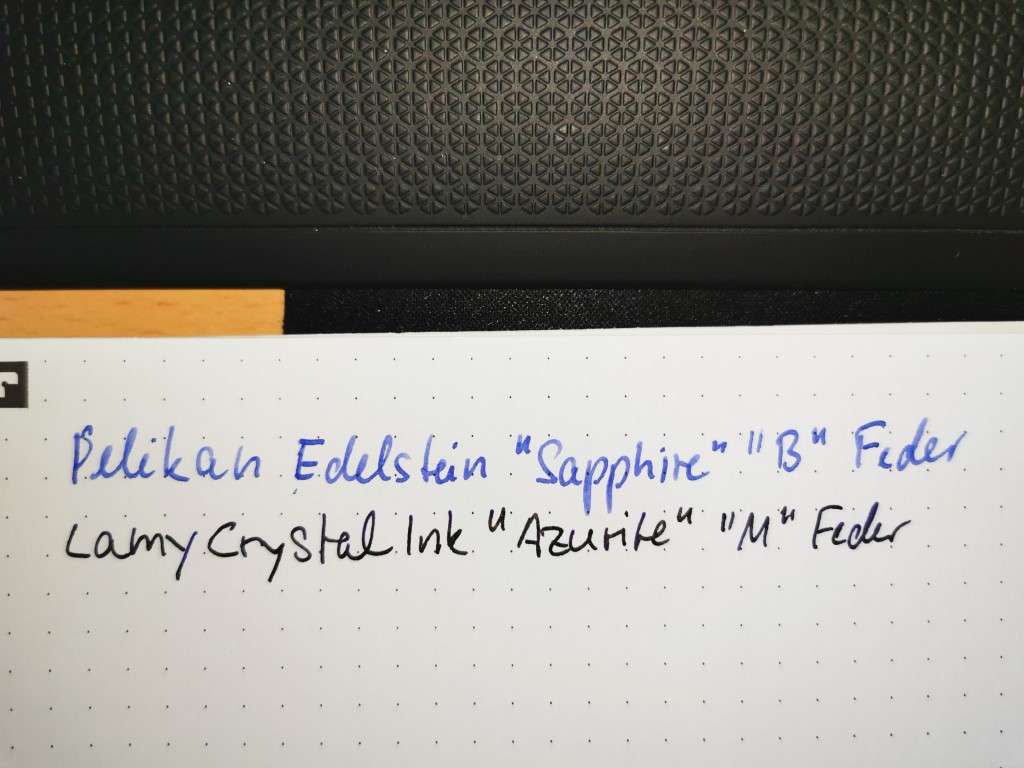 Pelikan Edelstein "Sapphire" "B" Feder
Lamy Crystal Ink "Azurite" "M" Feder